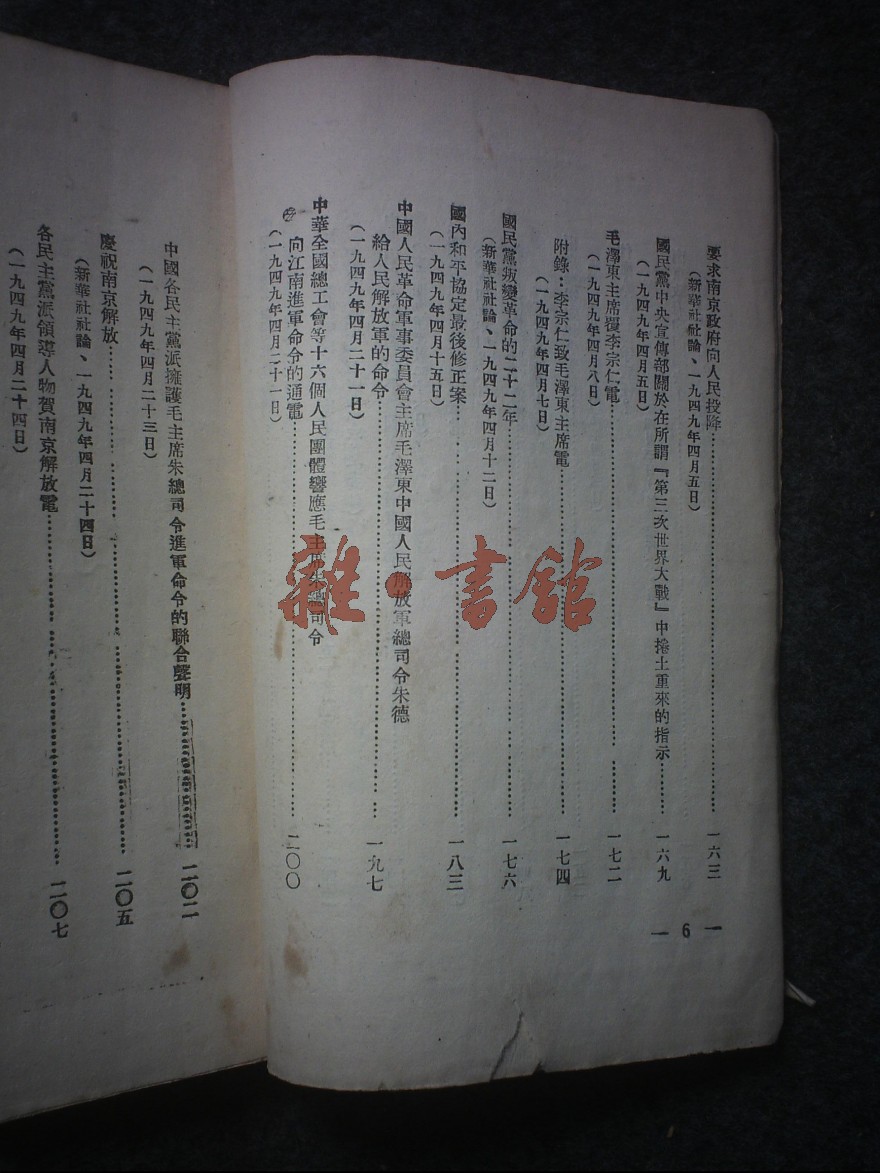 要求南京政府向人民投降……一六三
(新華社社論、一九四九年四月五日)
國民黨中央宣傳部關於在所謂『第三次世界大戰』中捲土重來的指示……一六九
(一九四九年四月五日)
毛澤東主席覆李宗仁電……一七二
(一九四九年四月八日)
附錄:李宗仁致毛澤東主席電……一七四
(一九四九年四月七日)
國民黨叛變革命的二十二年……一七六
(新華社社論、一九四九年四月十二日)
國內和平協定最後修正案……一八三
(一九四九年四月十五日)
中國人民革命軍事委員會主席毛澤東中國人民解放軍總司令朱德
給人民解放軍的命令……一九七
(一九四九年四月二十一日)
中華全國總工會等十六個人民團體響應毛主席朱總司令
向江南進軍命令的通電……二〇〇
(一九四九年四月二十一日)
— 6 —
中國各民主黨派擁護毛主席朱總司令進軍命令的聯合聲明……二〇二
(一九四九年四月二十三日)
慶祝南京解放……二〇五
(新華社社論、一九四九年四月二十四日)
各民主黨派領導人物賀南京解放電……二〇七
(一九四九年四月二十四日)
雜·書館